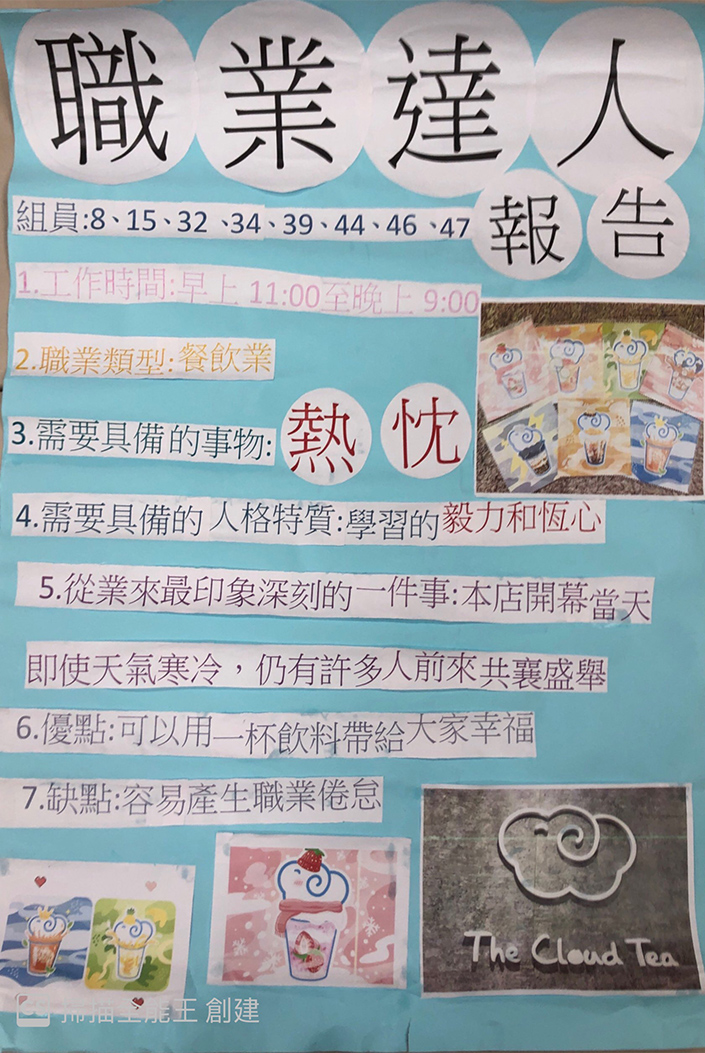 職業達人
報告
組員:8、15、32、34、39、44、46、47
1.工作時間:早上 11:00至晚上 9:00
2.職業類型:餐飲業
3.需要具備的事物:熱忱
4.需要具備的人格特質:學習的毅力和恆心
5.從業來最印象深刻的一件事:本店開幕當天
即使天氣寒冷，仍有許多人前來共襄盛舉
6.優點:可以用一杯飲料帶給大家幸福
7.缺點:容易產生職業倦怠
The Cloud Tea
掃描全能王 創建